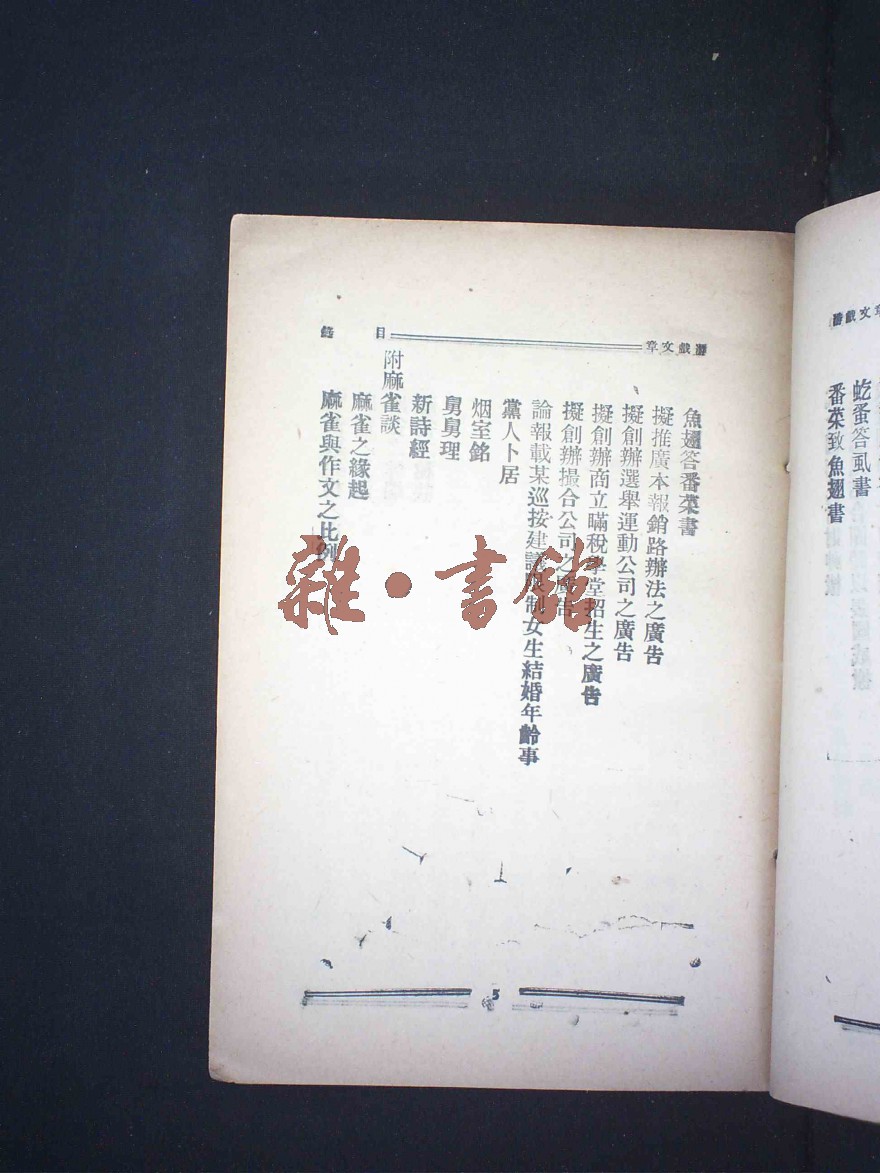 虼蚤答虱書
番菜致魚翅書
遊戲文章
目錄
魚翅答番菜書
擬推廣本報銷路辦法之廣告
擬創辦選舉運動公司之廣告
擬創辦商立瞞稅學堂招生之廣告
擬創辦撮合公司之廣告
論報載某巡按建議限制女生結婚年齡事
黨人卜居
烟室銘
舅舅理
新詩經
附麻雀談
麻雀之緣起
麻雀與作文之比例
5
雜·書館